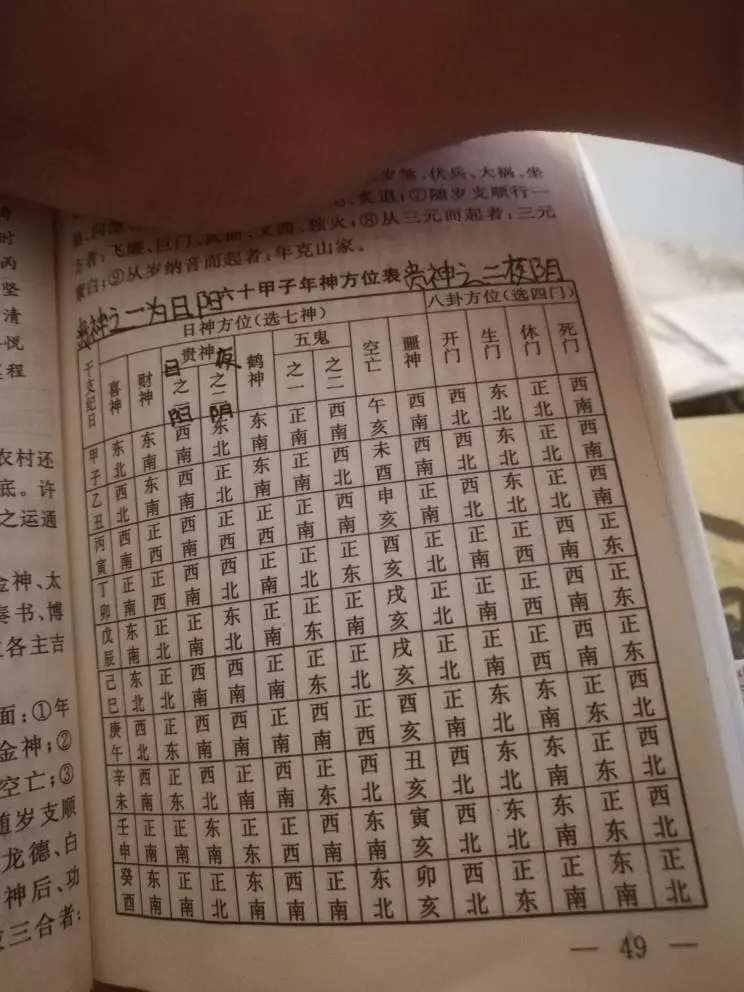 岁煞、伏兵、大祸、坐
炙退；⑦随岁支顺行一
方者：飞廉、巨门、武曲、文曲、独火；⑧从三元而起者：三元
紫白；⑨从岁纳音而起者：年克山家。
六十甲子年神方位表
贵神之一为日阳
贵神之二夜阴
日神方位（选七神） 八卦方位（选四门）
干支纪日 喜神 财神 贵神 鹤神 五鬼 空亡 噩神 开门 生门 休门 死门
之一 之二 之一 之二
日 夜
阳 阴
甲子 东北 东南 西南 东北 东南 正南 西南 午亥 西南 西北 东北 正北 西南
乙丑 西北 东南 西南 正北 东南 正南 西北 未酉 西南 西北 东北 正北 西南
丙寅 西南 正西 西南 正西 正南 西南 申亥 正南 西北 东北 正北 西南
丁卯 正南 正西 西北 正南 西北 正东 酉亥 正北 正北 正南 西南 正东
戊辰 东南 正北 东北 正南 正东 正北 戌亥 正北 正南 正东
己巳 东北 正北 西南 西南 正南 正东 正北 戌亥 正北 正南 正西 西南 正东
庚午 西北 正东 西南 西南 正南 西南 酉亥 正南 东北 东南 正南 西北
辛未 西南 正东 西北 西南 正北 丑亥 西南 东北 东南 正南 西北
壬申 正南 正南 东南 正东 西南 东南 寅亥 西南 东北 东南 正南 西北
癸酉 东南 正南 正北 东南 西南 正南 东北 卯亥 西北 正东 东南 正南 正北
— 49 —
时
丙
坚
清
悦
程
农村还
底。许
之运通
金神、太
奏书、博
各主吉
面：①年
金神；②
空亡；③
随岁支顺
龙德、白
神后、功
三合者：